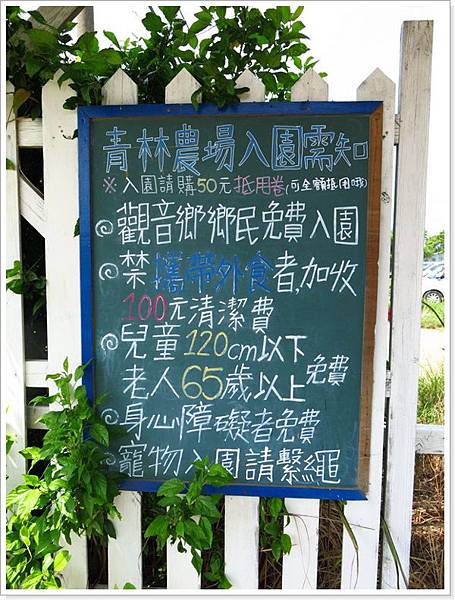 青林農場入園需知
※入園請購50元抵用卷(可全額抵用哦)
觀音鄉鄉民免費入園
禁攜帶外食者,加收
100元清潔費
兒童120cm以下
老人65歲以上免費
身心障礙者免費
寵物入園請繫繩